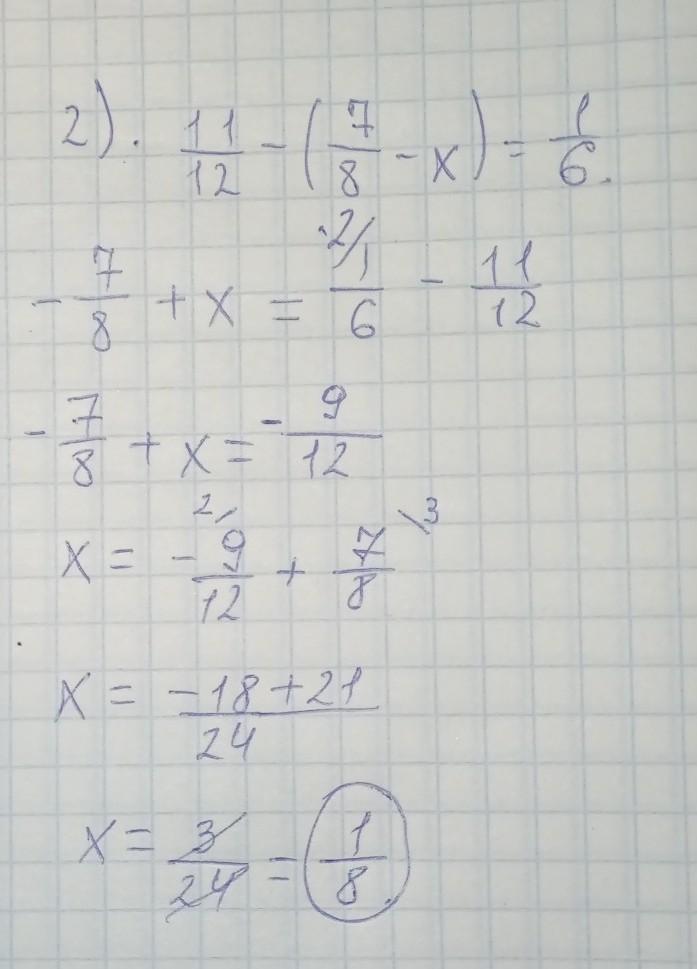 2). 11/12 - (7/8 - x) = 1/6.
- 7/8 + x = 2/ 1/6 - 11/12
- 7/8 + x = - 9/12
x = 2/ - 9/12 + 7/8 \3
x = (-18 + 21)/24
x = 3/24 = 1/8.